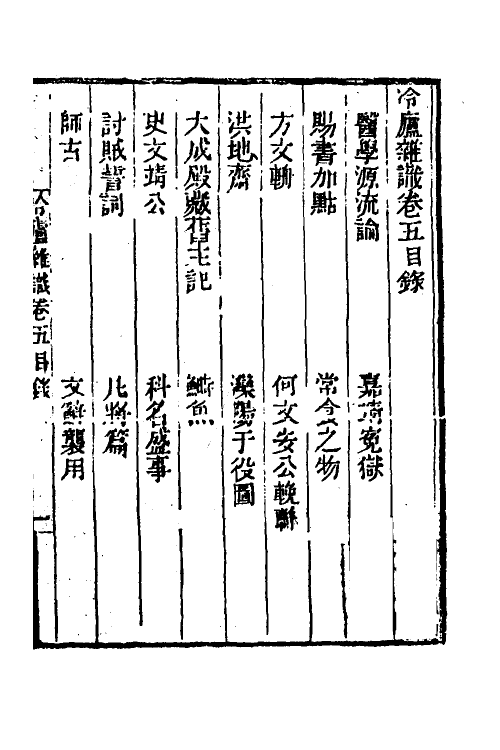 冷廬雜識卷五目錄
醫學源流論　嘉靖寃獄
賜書加點　常今之物
方文輈　何文安公輓聯
洪地齋　灤陽于役圖
大成殿嶽舊主記　鰣魚
史文靖公　科名盛事
討賊誓詞　凡將篇
師古　文辭襲用
冷廬雜識卷五目錄　一